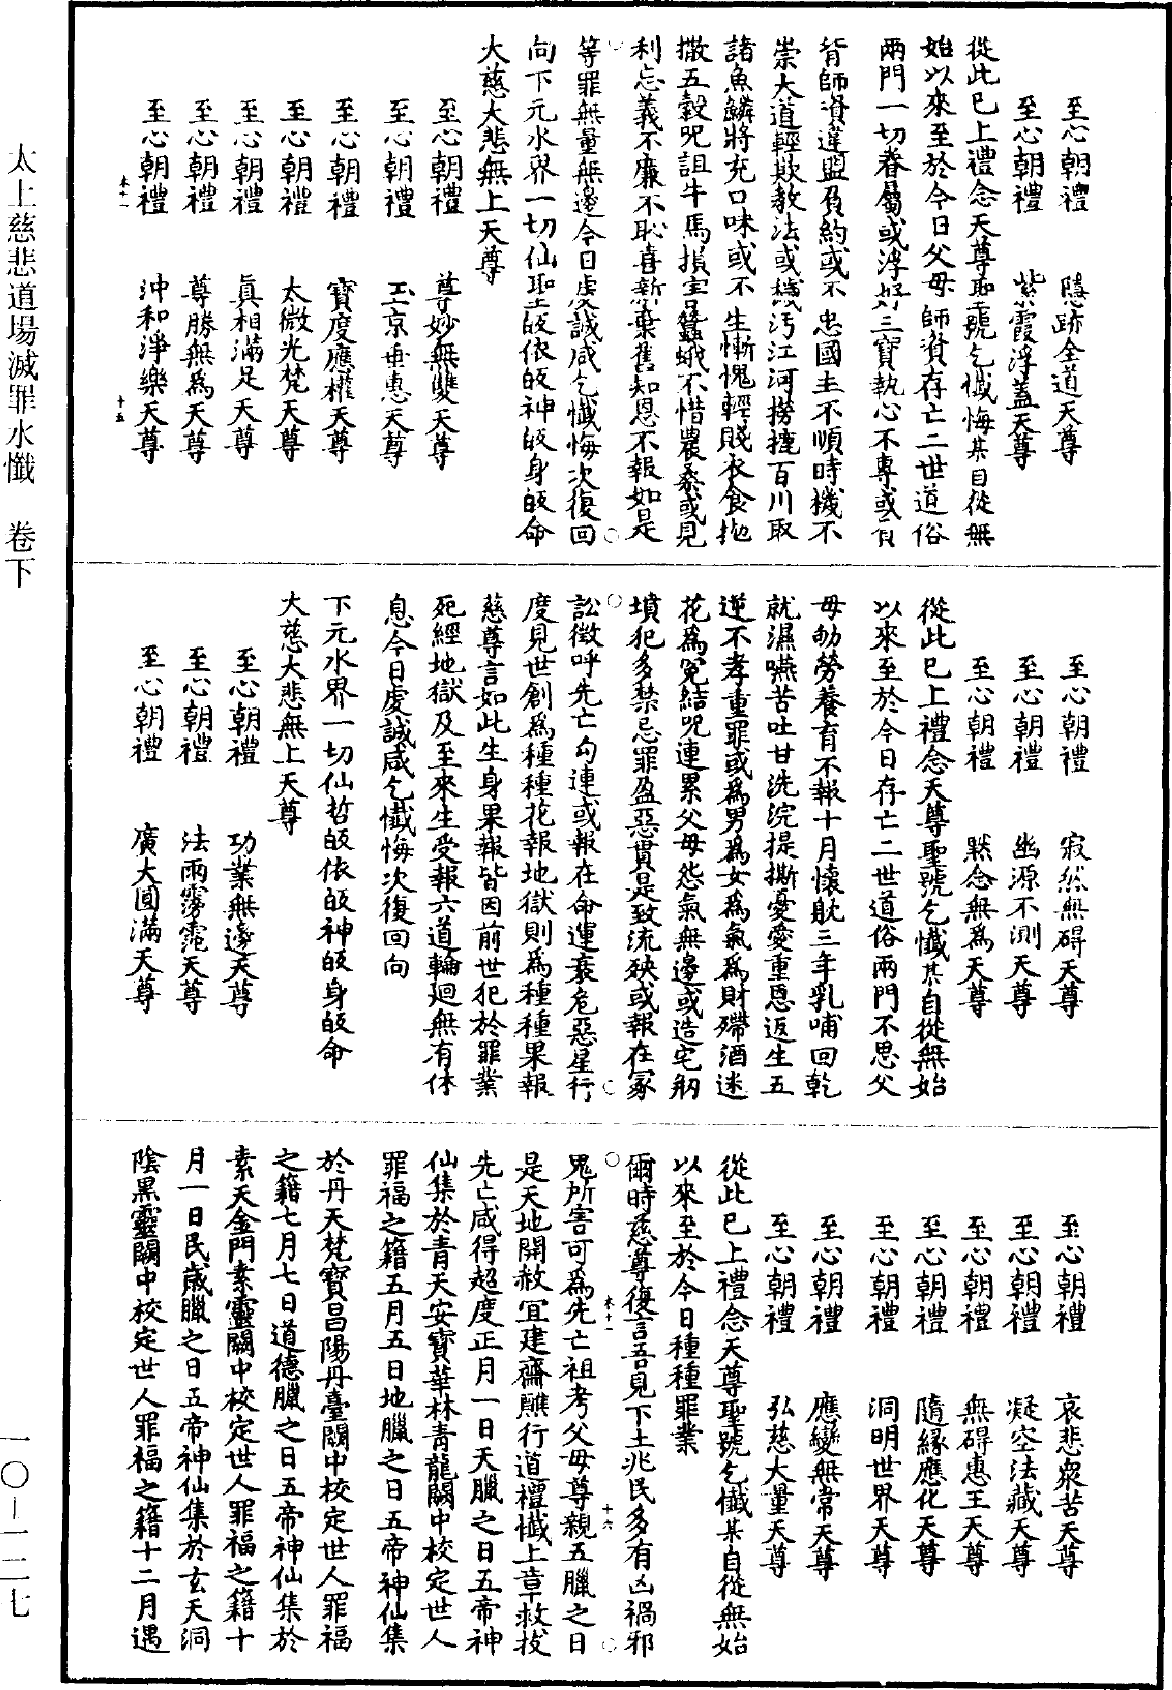 至心朝禮　隱跡全道天尊
至心朝禮　紫霞浮蓋天尊
從此已上禮念天尊聖號乞懺悔某自從無
始以來至於今日父母師資存亡二世道俗
兩門一切眷屬或浮好三寶執心不專或有
背師資違盟負約或不忠國主不順時機不
崇大道輕欺教法或穢污江河撈摝百川取
諸魚鱗將充口味或不生慚愧輕賤衣食抛
撒五穀咒詛牛馬損害蠶蛾不惜農桑或見
利忘義不廉不恥喜新棄舊知恩不報如是
等罪無量無邊今日虔誠咸乞懺悔次復回
向下元水界一切仙聖皈依皈神皈身皈命
大慈大悲無上天尊
至心朝禮　尊妙無雙天尊
至心朝禮　玉京垂惠天尊
至心朝禮　寶度應權天尊
至心朝禮　太微光梵天尊
至心朝禮　真相滿足天尊
至心朝禮　尊勝無為天尊
至心朝禮　沖和淨樂天尊
木十一　十五
至心朝禮　寂然無碍天尊
至心朝禮　幽源不測天尊
至心朝禮　默念無為天尊
從此已上禮念天尊聖號乞懺某自從無始
以來至於今日存亡二世道俗兩門不思父
母劬勞養育不報十月懷躭三年乳哺回乾
就濕嚥苦吐甘洗浣提撕憂愛重恩返生五
逆不孝重罪或為男為女為氣為財殢酒迷
花為冤結咒連累父母怨氣無邊或造宅剏
墳犯多禁忌罪盈惡貫是致流殃或報在冢
訟徵呼先亡勾連或報在命運衰危惡星行
度見世創為種種花報地獄則為種種果報
慈尊言如此生身果報皆因前世犯於罪業
死經地獄及至來生受報六道輪迴無有休
息今日虔誠咸乞懺悔次復回向
下元水界一切仙哲皈依皈神皈身皈命
大慈大悲無上天尊
至心朝禮　功業無邊天尊
至心朝禮　法雨霶霑天尊
至心朝禮　廣大圓滿天尊
至心朝禮　哀悲眾苦天尊
至心朝禮　凝空法藏天尊
至心朝禮　無碍惠王天尊
至心朝禮　隨緣應化天尊
至心朝禮　洞明世界天尊
至心朝禮　應變無常天尊
至心朝禮　弘慈大量天尊
從此已上禮念天尊聖號乞懺某自從無始
以來至於今日種種罪業
爾時慈尊復言吾見下土兆民多有凶禍邪
木十一　十六
鬼所害可為先亡祖考父母尊親五臘之日
是天地開赦宜建齋醮行道禮懺上章救拔
先亡咸得超度正月一日天臘之日五帝神
仙集於青天安寶華林青龍闕中校定世人
罪福之籍五月五日地臘之日五帝神仙集
於丹天梵寶昌陽丹臺闕中校定世人罪福
之籍七月七日道德臘之日五帝神仙集於
素天金門素靈闕中校定世人罪福之籍十
月一日民歲臘之日五帝神仙集於玄天洞
陰黑靈闕中校定世人罪福之籍十二月遇
太上慈悲道場滅罪水懺　卷下
一〇—一二七